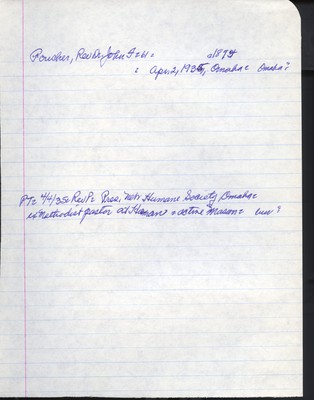 Poucher, Rev Dr. John F = bl = a1875
= Apr 2, 1935, Omaha = Omaha?
PT = 4/4/35 = Rev P = Pres, Neb Humane Society Omaha =
ex Methodist pastor at = active Mason =